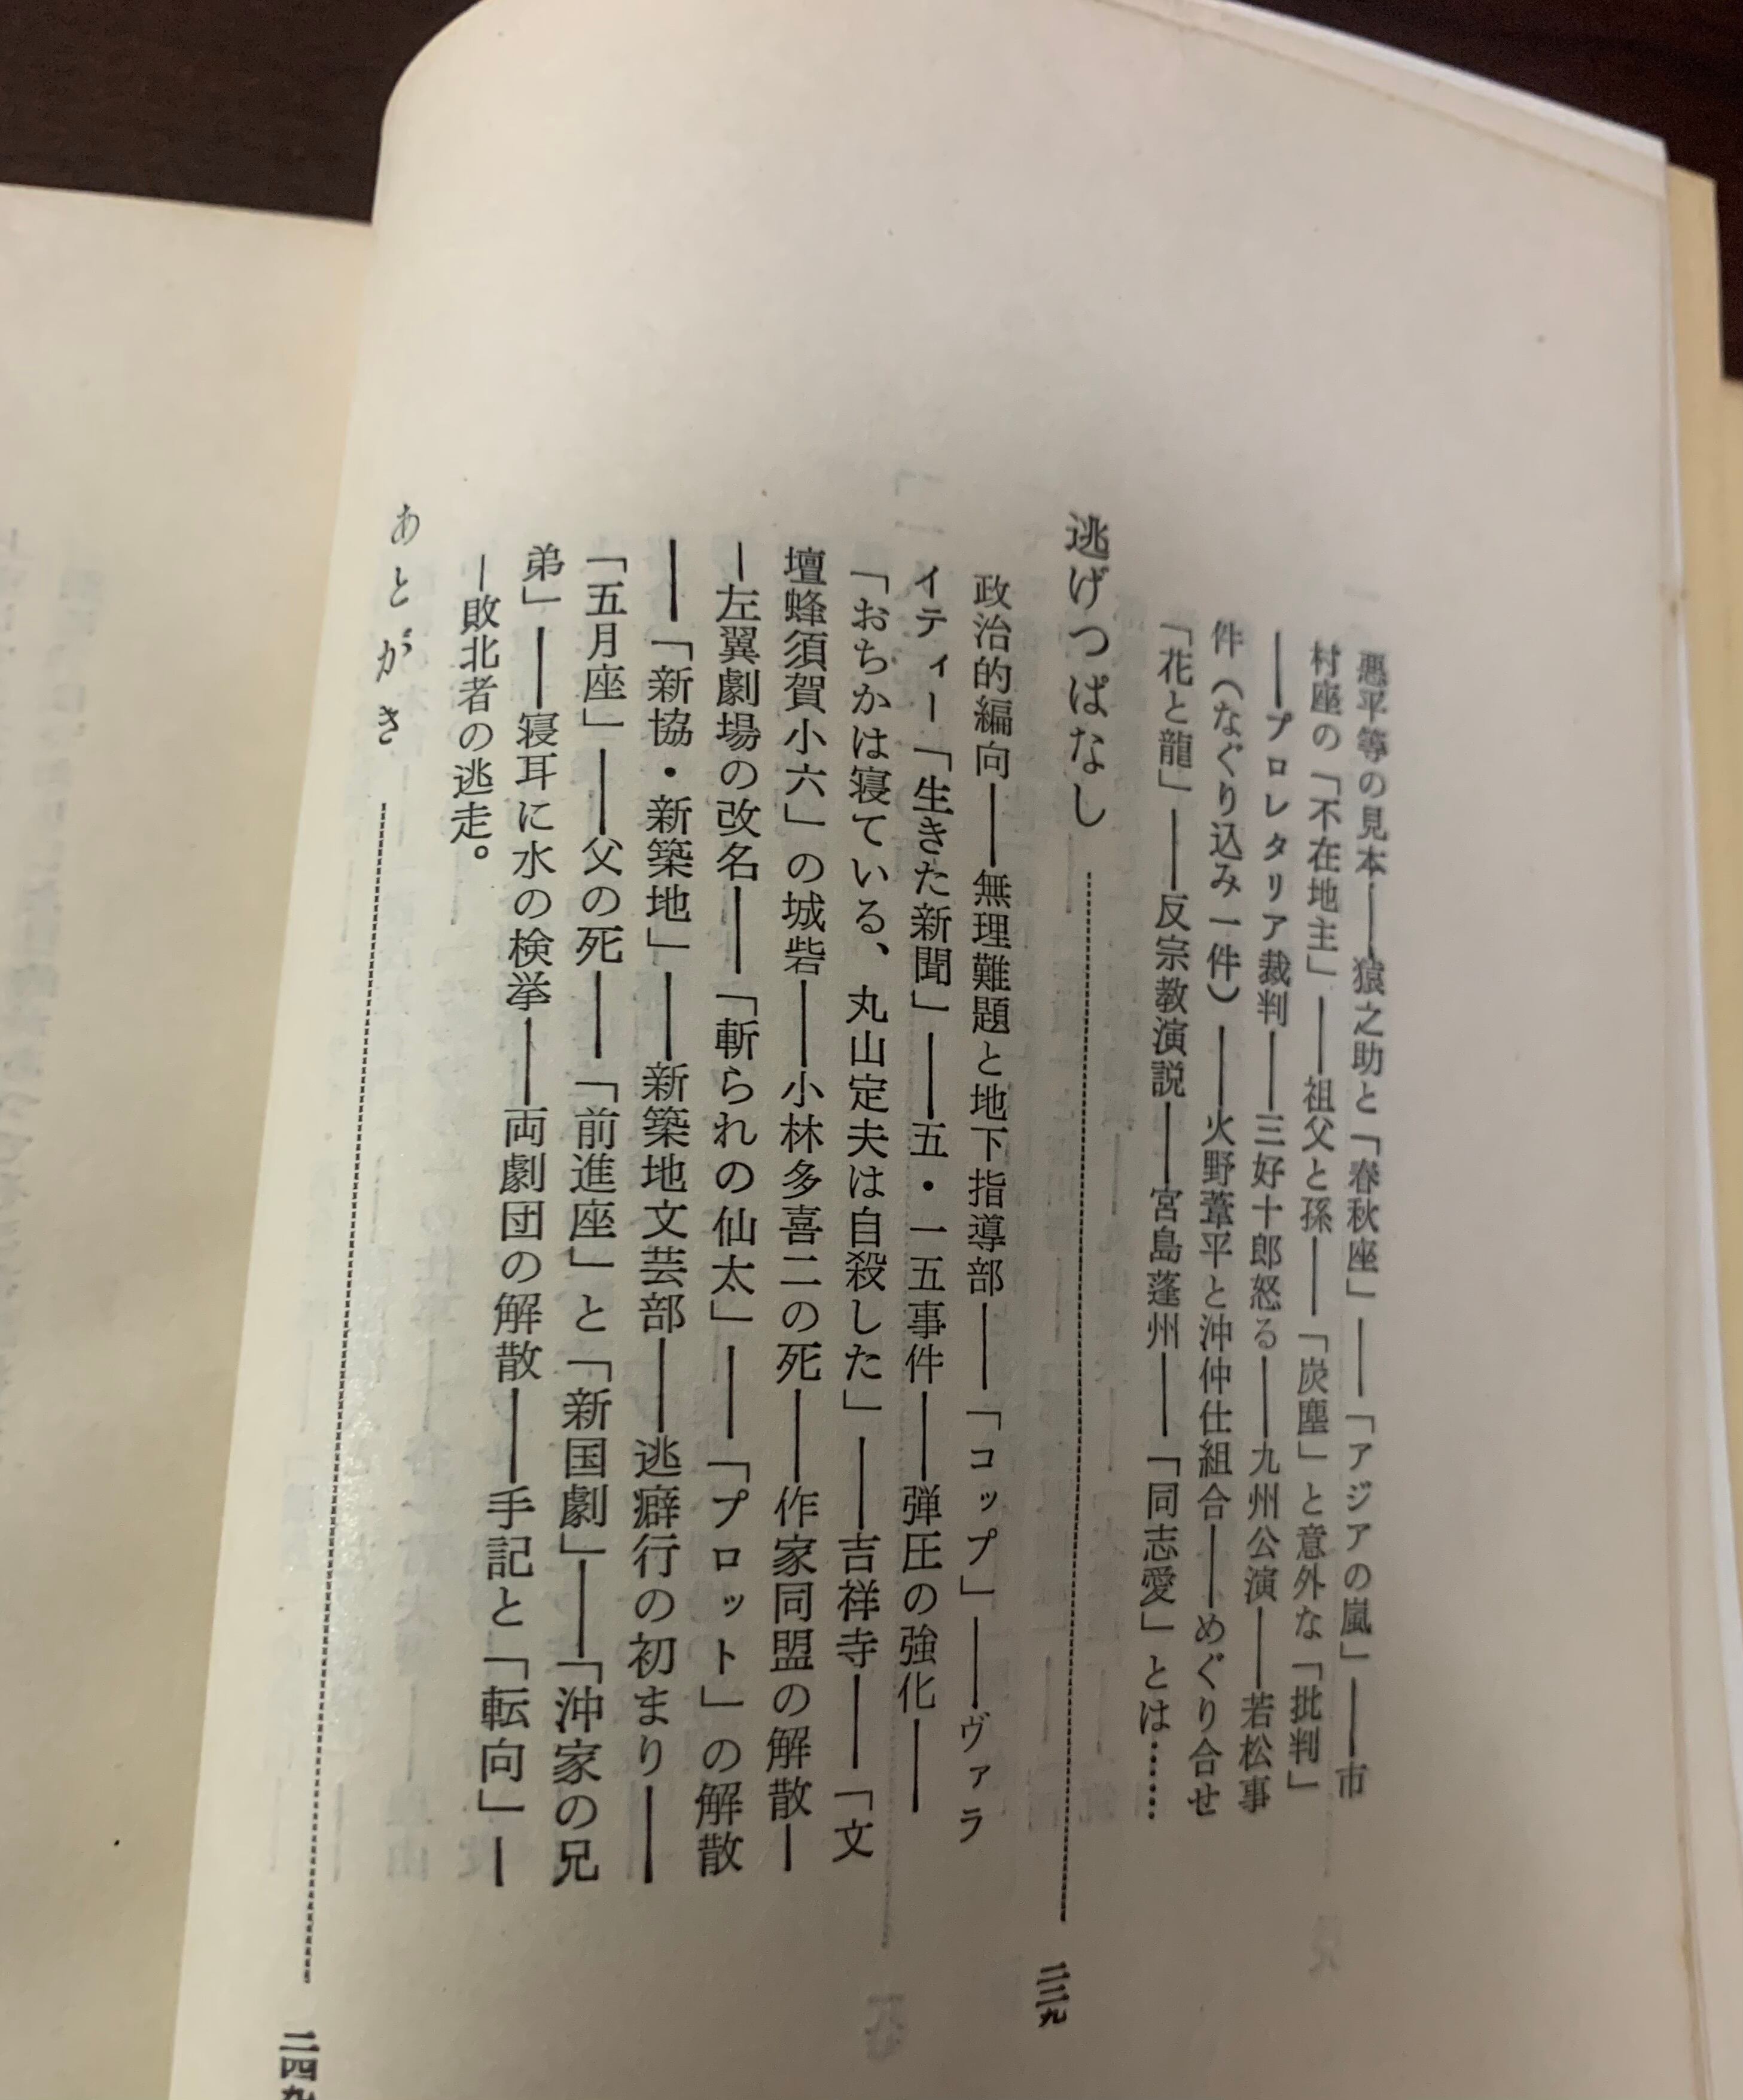 悪平等の見本――猿之助と「春秋座」――「アジアの嵐」――市
村座の「不在地主」――祖父と孫――「炭塵」と意外な「批判」
――プロレタリア裁判――三好十郎怒る――九州公演――若松事
件（なぐり込み一件）――火野葦平と沖仲仕組合――めぐり合せ
「花と龍」――反宗教演説――宮島蓬州――「同志愛」とは……
逃げつぱなし
二三九
政治的編向――無理難題と地下指導部――「コップ」――ヴァラ
イティー「生きた新聞」――五・一五事件――弾圧の強化――
「おちかは寝ている、丸山定夫は自殺した」――吉祥寺――「文
壇蜂須賀小六」の城砦――小林多喜二の死――作家同盟の解散―
―左翼劇場の改名――「斬られの仙太」――「プロット」の解散
――「新協・新築地」――新築地文芸部――逃癖行の初まり――
「五月座」――父の死――「前進座」と「新国劇」――「沖家の兄
弟」――寝耳に水の検挙――両劇団の解散――手記と「転向」―
―敗北者の逃走。
あとがき
二四九